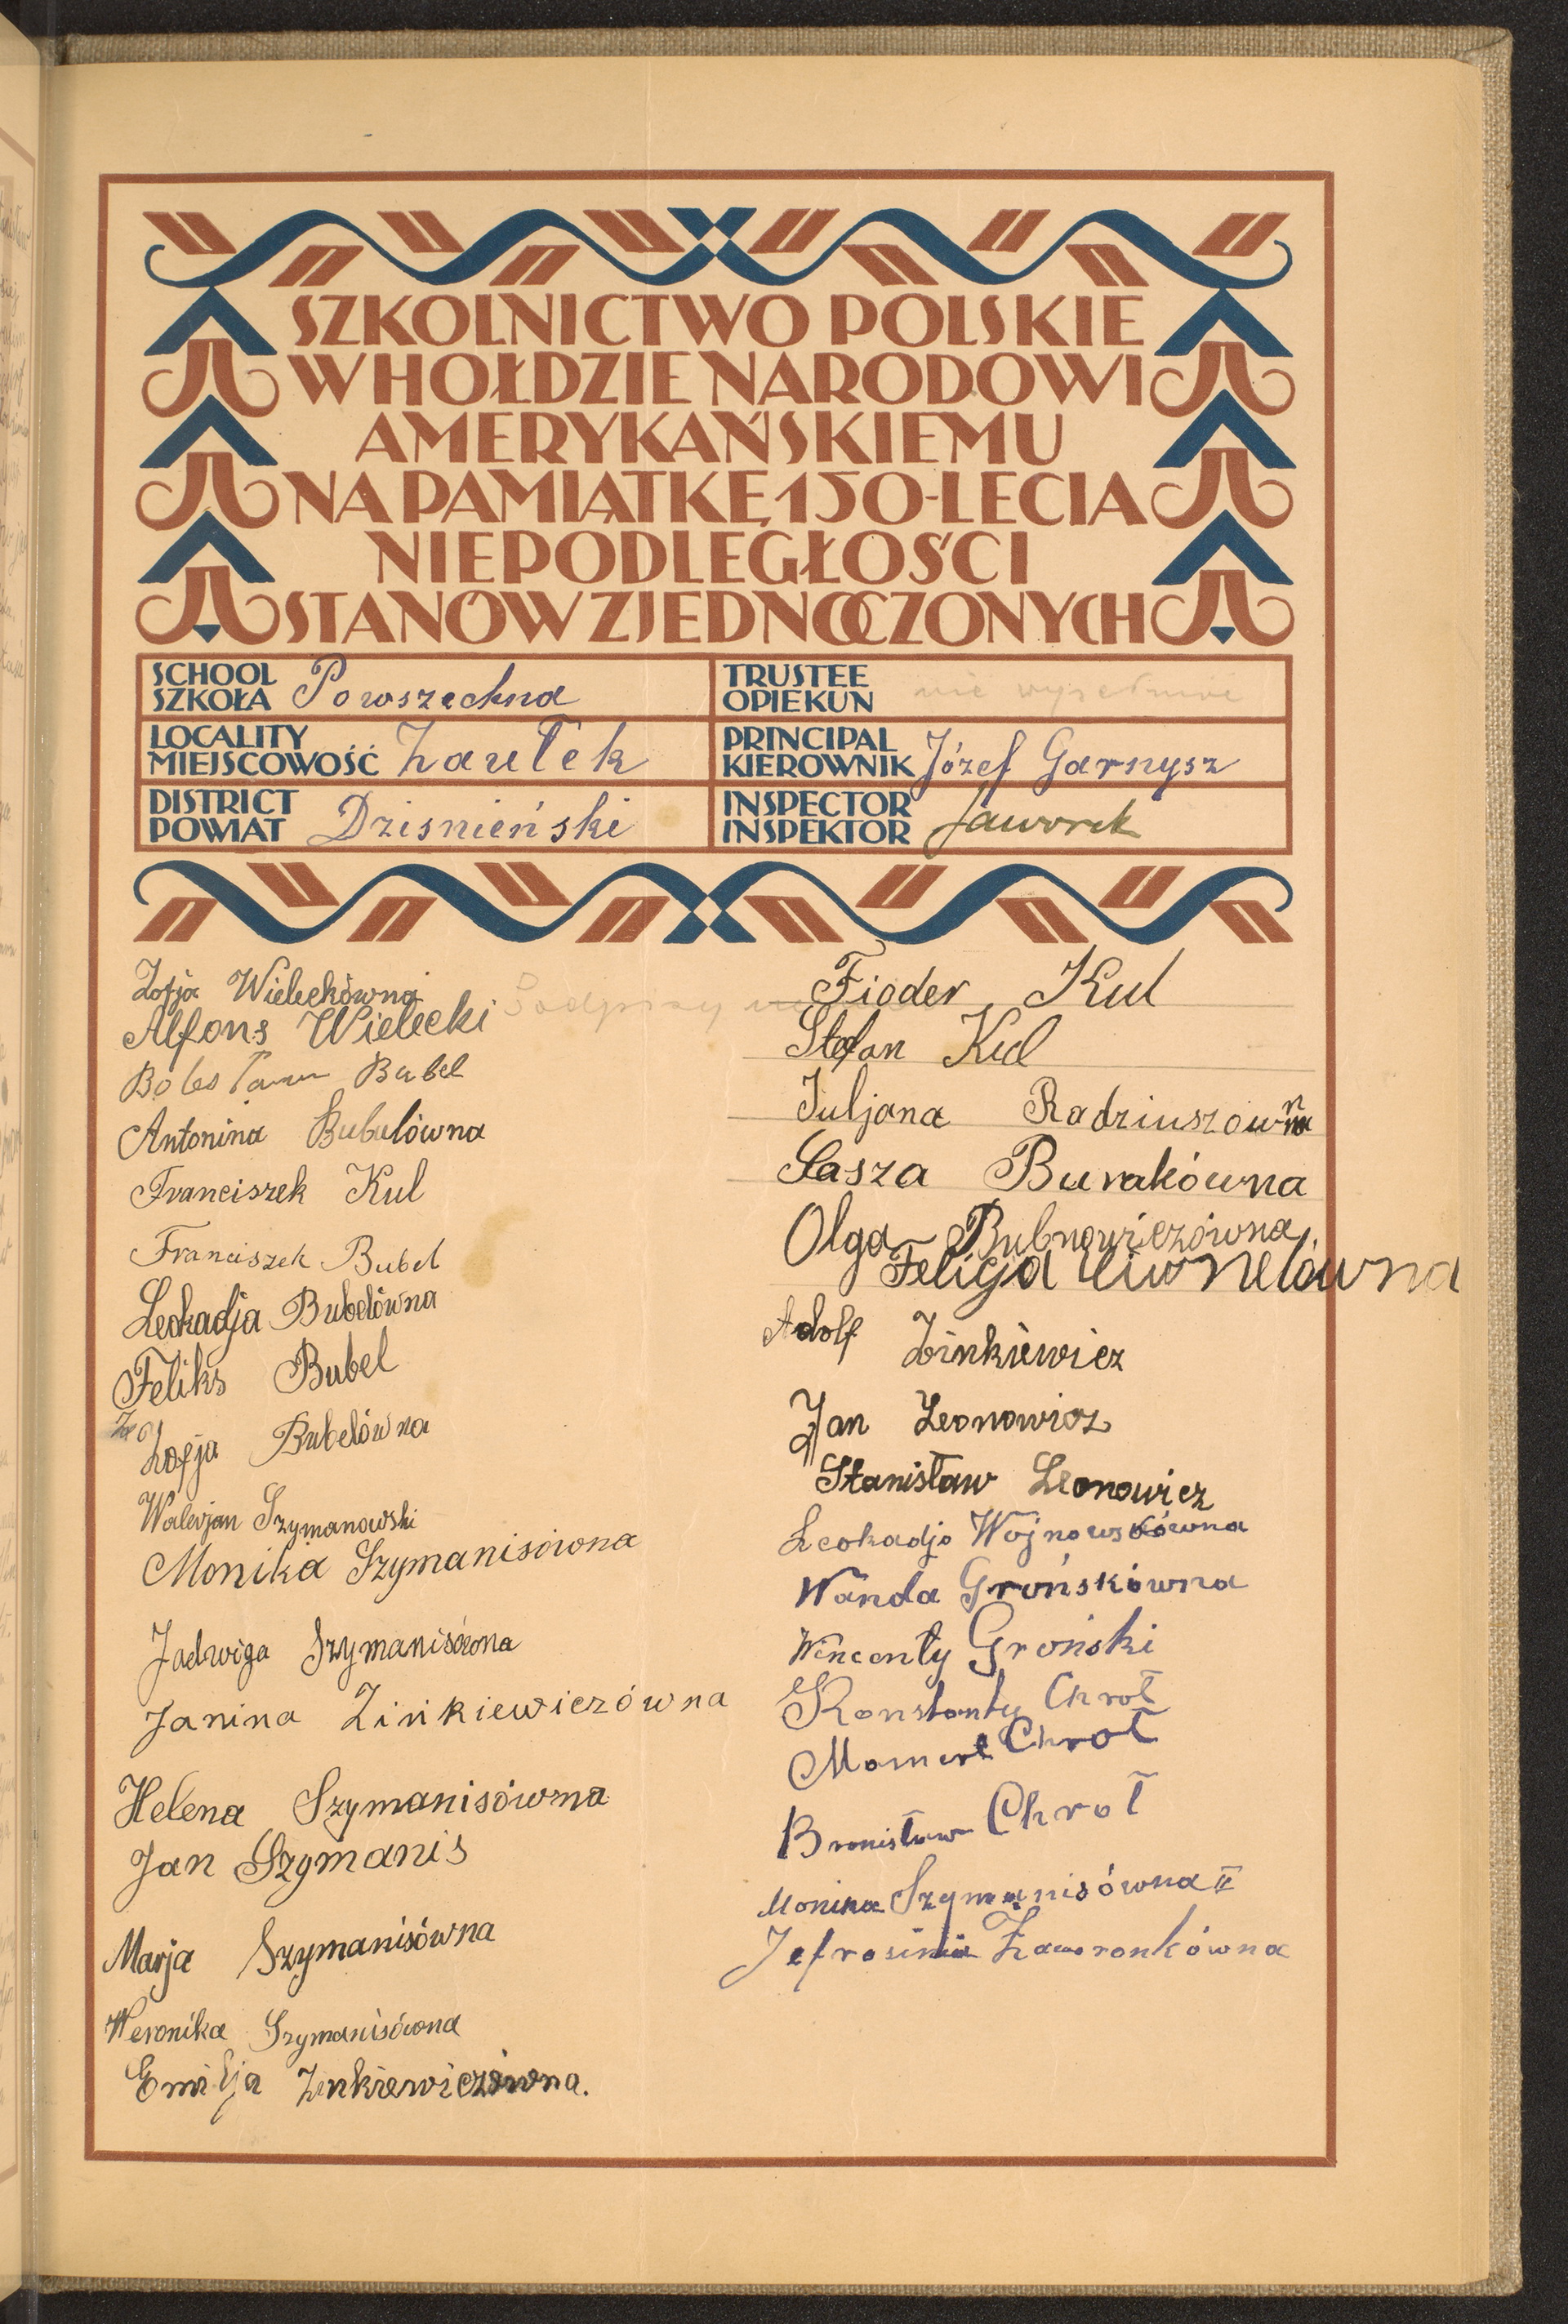 SZKOLNICTWO POLSKIE
W HOŁDZIE NARODOWI
AMERYKAŃSKIEMU
NA PAMIĄTKĘ 150-LECIA
NIEPODLEGŁOŚCI
STANÓW ZJEDNOCZONYCH
SCHOOL
SZKOŁA Powszechna
TRUSTEE
OPIEKUN nie wypełniać
LOCALITY
MIEJSCOWOŚĆ Zaułek
PRINCIPAL
KIEROWNIK Józef Garnysz
DISTRICT
POWIAT Dzisnieński
INSPECTOR
INSPEKTOR Jaworek
Zofja Wieleckówna
Alfons Wielecki
Podpisy
Bolesław Bubel
Antonina Bubelówna
Franciszek Kul
Franciszek Bubel
Leokadja Bubelówna
Feliks Bubel
Zofja Bubelówna
Walerjan Szymanowski
Monika Szymanisówna
Jadwiga Szymanisówna
Janina Zinkiewiczówna
Helena Szymanisówna
Jan Szymanis
Marja Szymanisówna
Weronika Szymanisówna
Emilja Zinkiewiczówna.
Fioder Kul
Stefan Kul
Juljana Radziuszówna
Sasza Burakówna
Olga Bubnowiczówna
Felicja
Adolf Zinkiewicz
Jan Leonowicz
Stanisław Leonowicz
Leokadja Wojnowskówna
Wanda Grońskówna
Wincenty Groński
Konstanty Chroł
Chroł
Bronisław Chroł
Monika Szymanisówna II
Jefrosinia Żaworonkówna